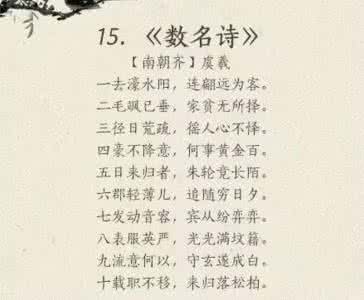 15. 《数名诗》
【南朝齐】虞羲
一去濠水阳，连翩远为客。
二毛飒已垂，家贫无所择。
三径日荒疏，徭人心不怿。
四豪不降意，何事黄金百。
五日来归者，朱轮竟长陌。
六郡轻薄儿，追随穷日夕。
七发动音容，宾从纷奕奕。
八表服英严，光光满坟籍。
九流意何以，守玄遂成白。
十载职不移，来归落松柏。